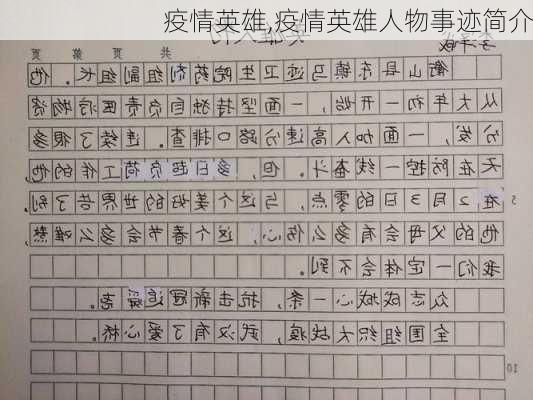 疫情英雄,疫情英雄人物事迹简介
共 页 第 页
衡山县东镇马迹卫生院药剂组副组长。他
从大年初一开始,一面坚持独自负责医疗物资
分发,一面加入高速公路口排查。连续了很多
天在防控一线奋斗。但,多日超负荷工作的他,
在2月3日的零点,与这个美好的世界告了别
他的父母会有多么伤心,这个春节会多么难熬,
我们一定体会不到。
众志成城心一条,抗击新冠追离。
全国组织大战疫,武汉有了爱心桥。
10